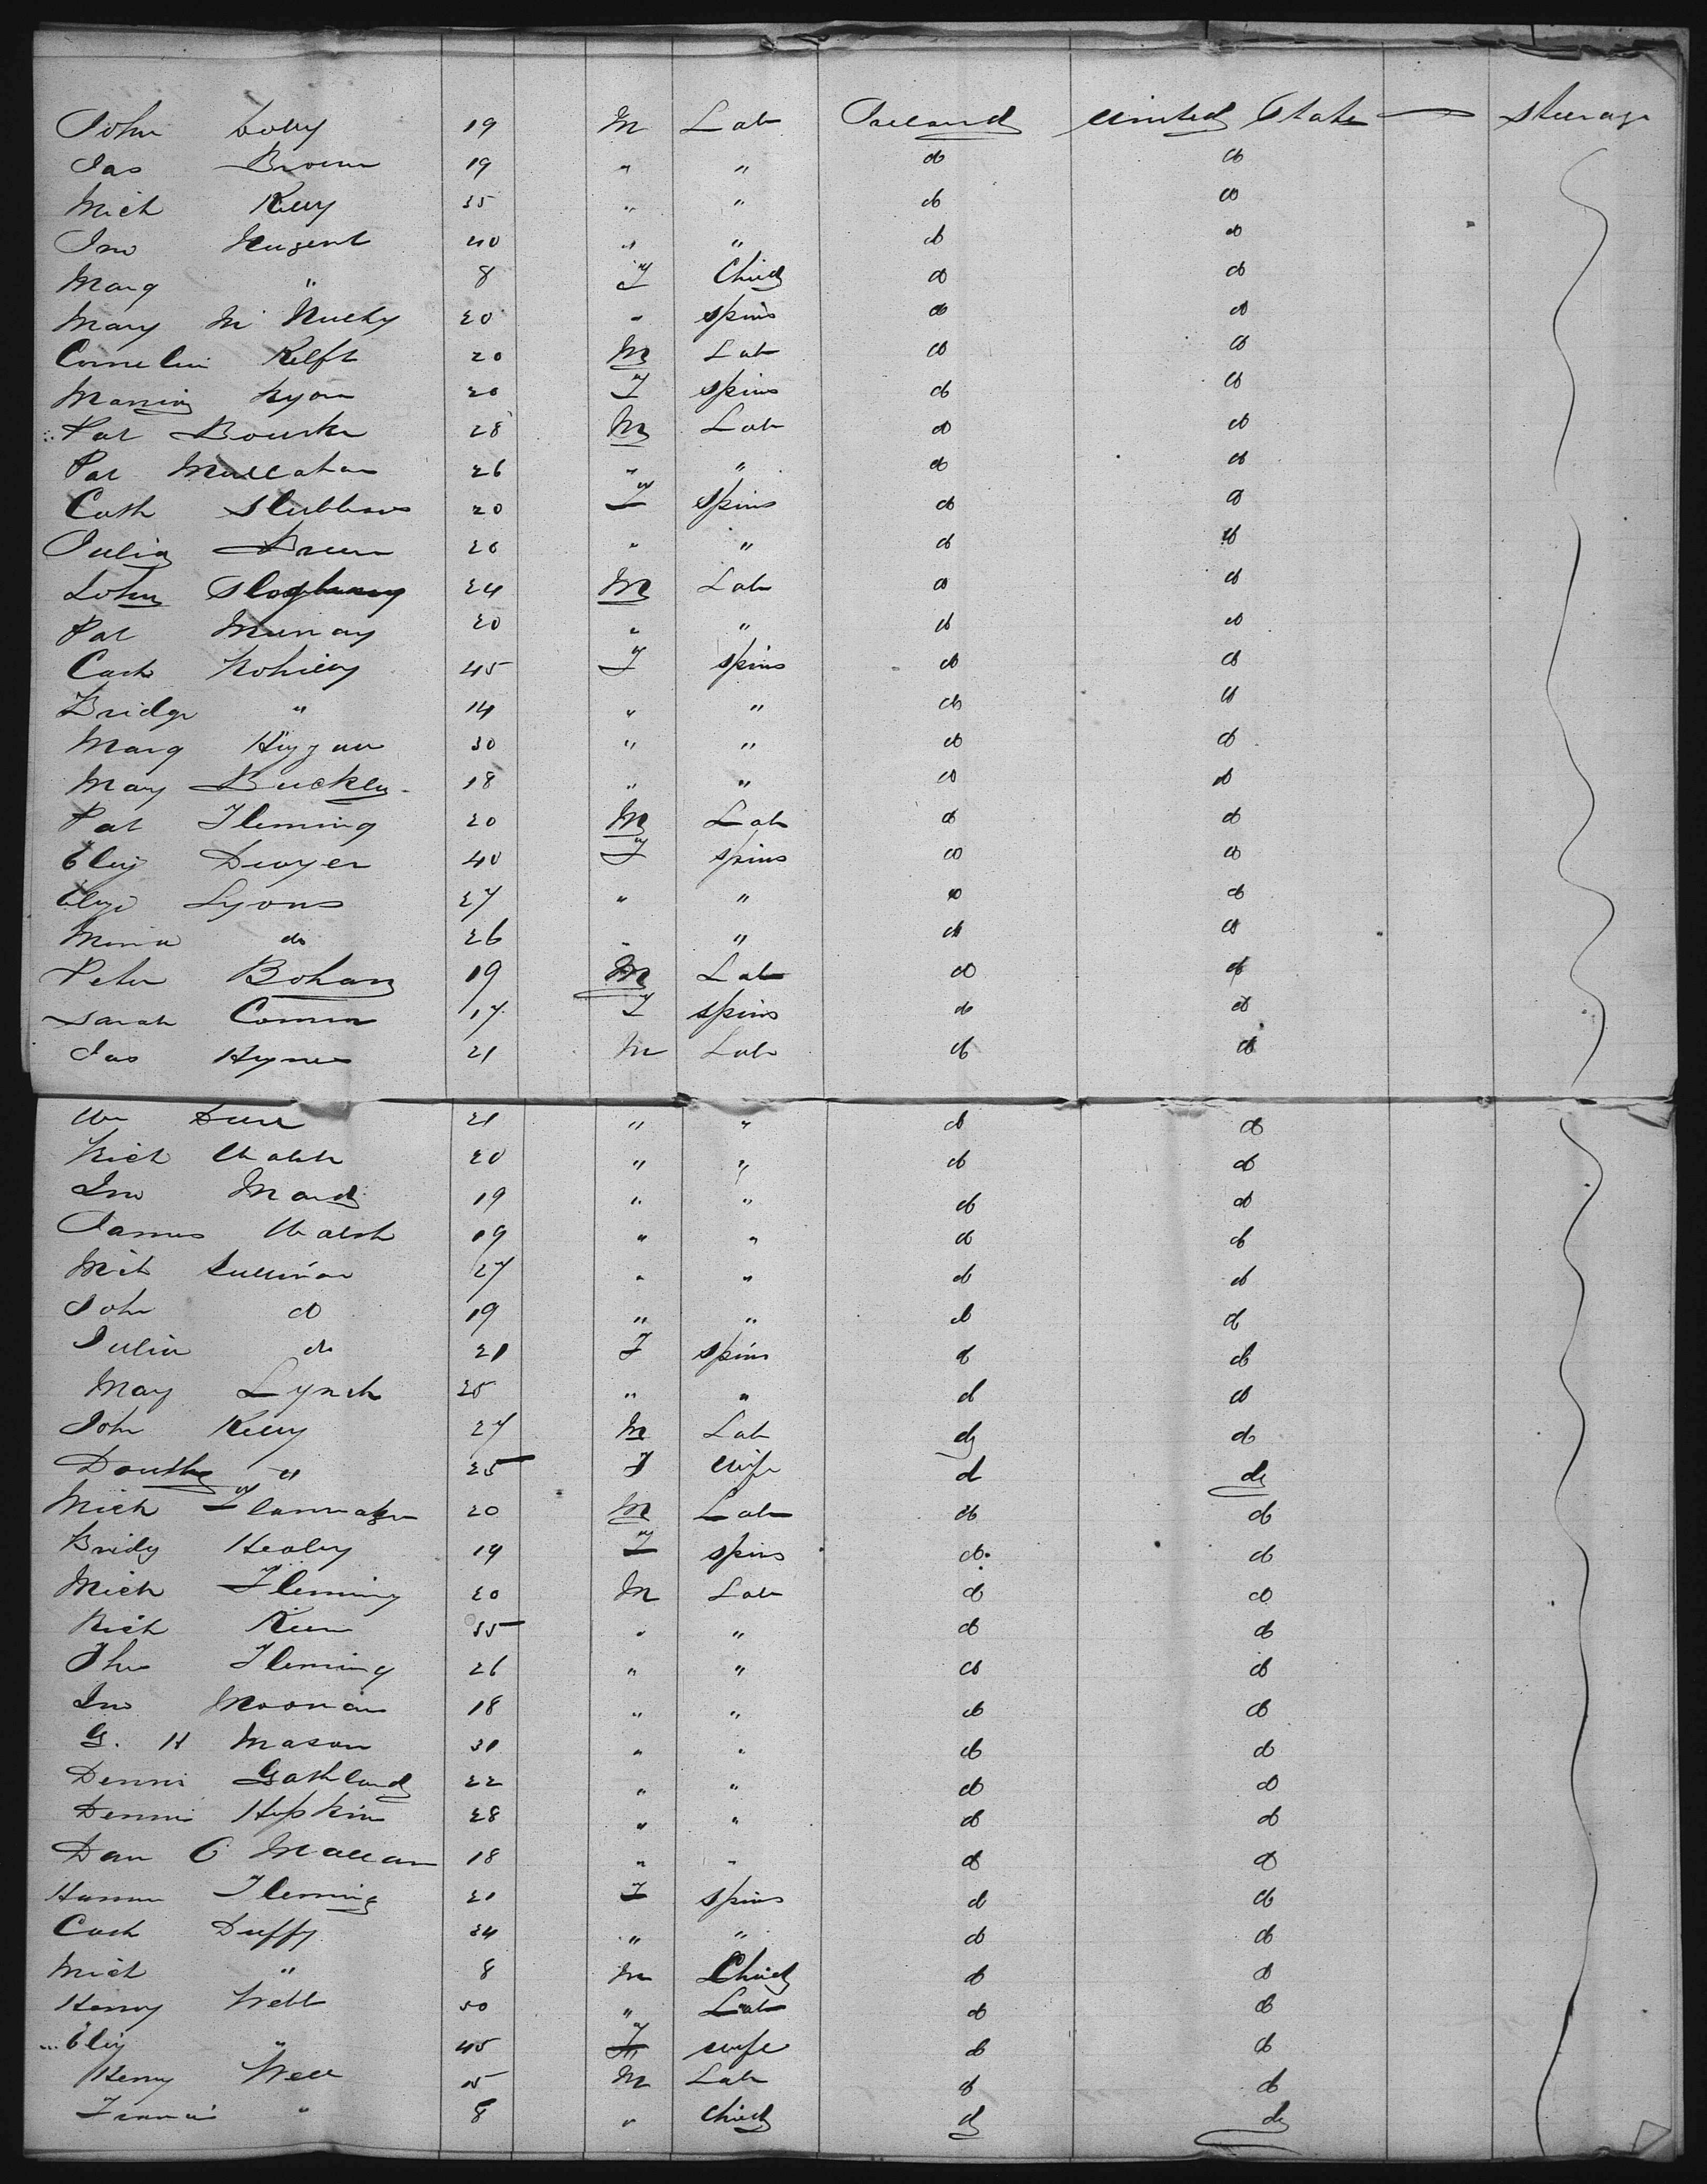 John 19 M Lab Ireland United State — Steerage
Jas Brown 19 " " do do
Mich Kelly 35 " " do do
Jno Nugent 40 " " do do
Marg " 8 F Child do do
Mary Mc 20 " spins do do
20 M Lab do do
Ryan 20 F spins do do
Pat Bourke 28 M Lab do do
Pat 26 " " do do
Cath Stubbins 20 F spins do do
Julia 20 " " do do
John 24 M Lab do do
Pat Murray 20 " " do do
Cath 45 F spins do do
Bridge " 14 " " do do
Marg 30 " " do do
Mary Buckley 18 " " do do
Pat Fleming 20 M Lab do do
Eliz Dwyer 40 F spins do do
Eliza Lyons 27 " " do do
do 26 " " do do
Peter Bohan 19 M Lab do do
Sarah 17 F spins do do
Jas Hynes 21 M Lab do do
Wm 21 " " do do
Rich Walsh 20 " " do do
Jno 19 " " do do
James Walsh 19 " " do do
Mich Sullivan 27 " " do do
John do 19 " " do do
Julia do 21 F spins do do
Mary Lynch 25 " " do do
John Kelly 27 M Lab do do
" 25 F wife do do
Mich 20 M Lab do do
Bridg Healey 19 F spins do do
Mich Fleming 20 M Lab do do
Rich 35 " " do do
Fleming 26 " " do do
Jno Noonan 18 " " do do
G. H Mason 31 " " do do
Dennis 22 " " do do
Dennis Hopkins 28 " " do do
Dan O 18 " " do do
Fleming 21 F spins do do
Cath Duffy 34 " " do do
Mich " 8 M Child do do
Henry Webb 50 " Lab do do
Eliz " 45 F wife do do
Henry M Lab do do
Francis " 8 " Child do do